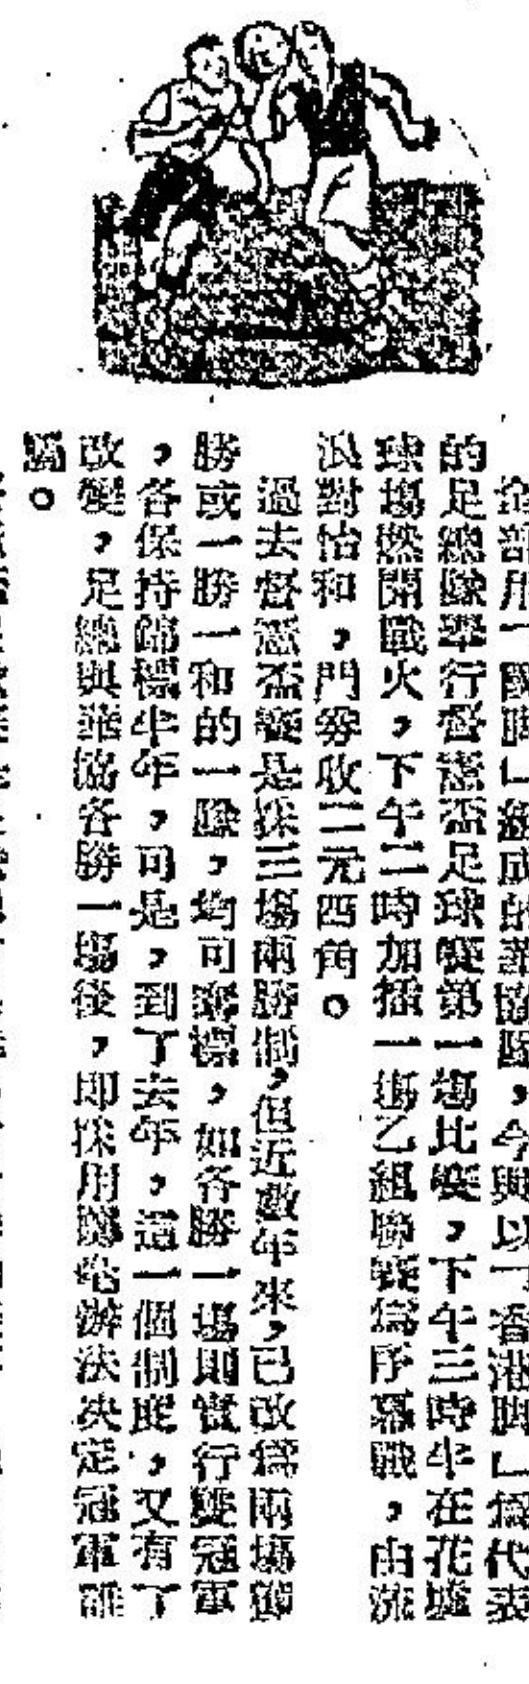 全部用「國脚」組成的華協隊,今與以「香港脚」爲代表
的足總隊舉行督憲盃足球賽第一塲比賽,下午三時半在花墟
球塲燃開戰火,下午二時加插一塲乙組聯賽爲序幕戰,由流
浪對怡和,門券收二元四角。
過去督憲盃賽是採三塲兩勝制,但近數年來,已改爲兩塲獲
勝或一勝一和的一隊,均可奪標,如各勝一塲則實行雙冠軍
,各保持錦標半年,可是,到了去年,這一個制度,又有了
改變,足總與華協各勝一塲後,即採用擲毫辦法決定冠軍誰
屬。